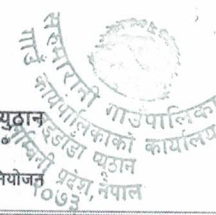 सरुमारानी गाउँपालिका
गाउँ कार्यपालिकाको कार्यालय
प्यूठान
लुम्बिनी प्रदेश, नेपाल
२०७३
युठान
नियोजन